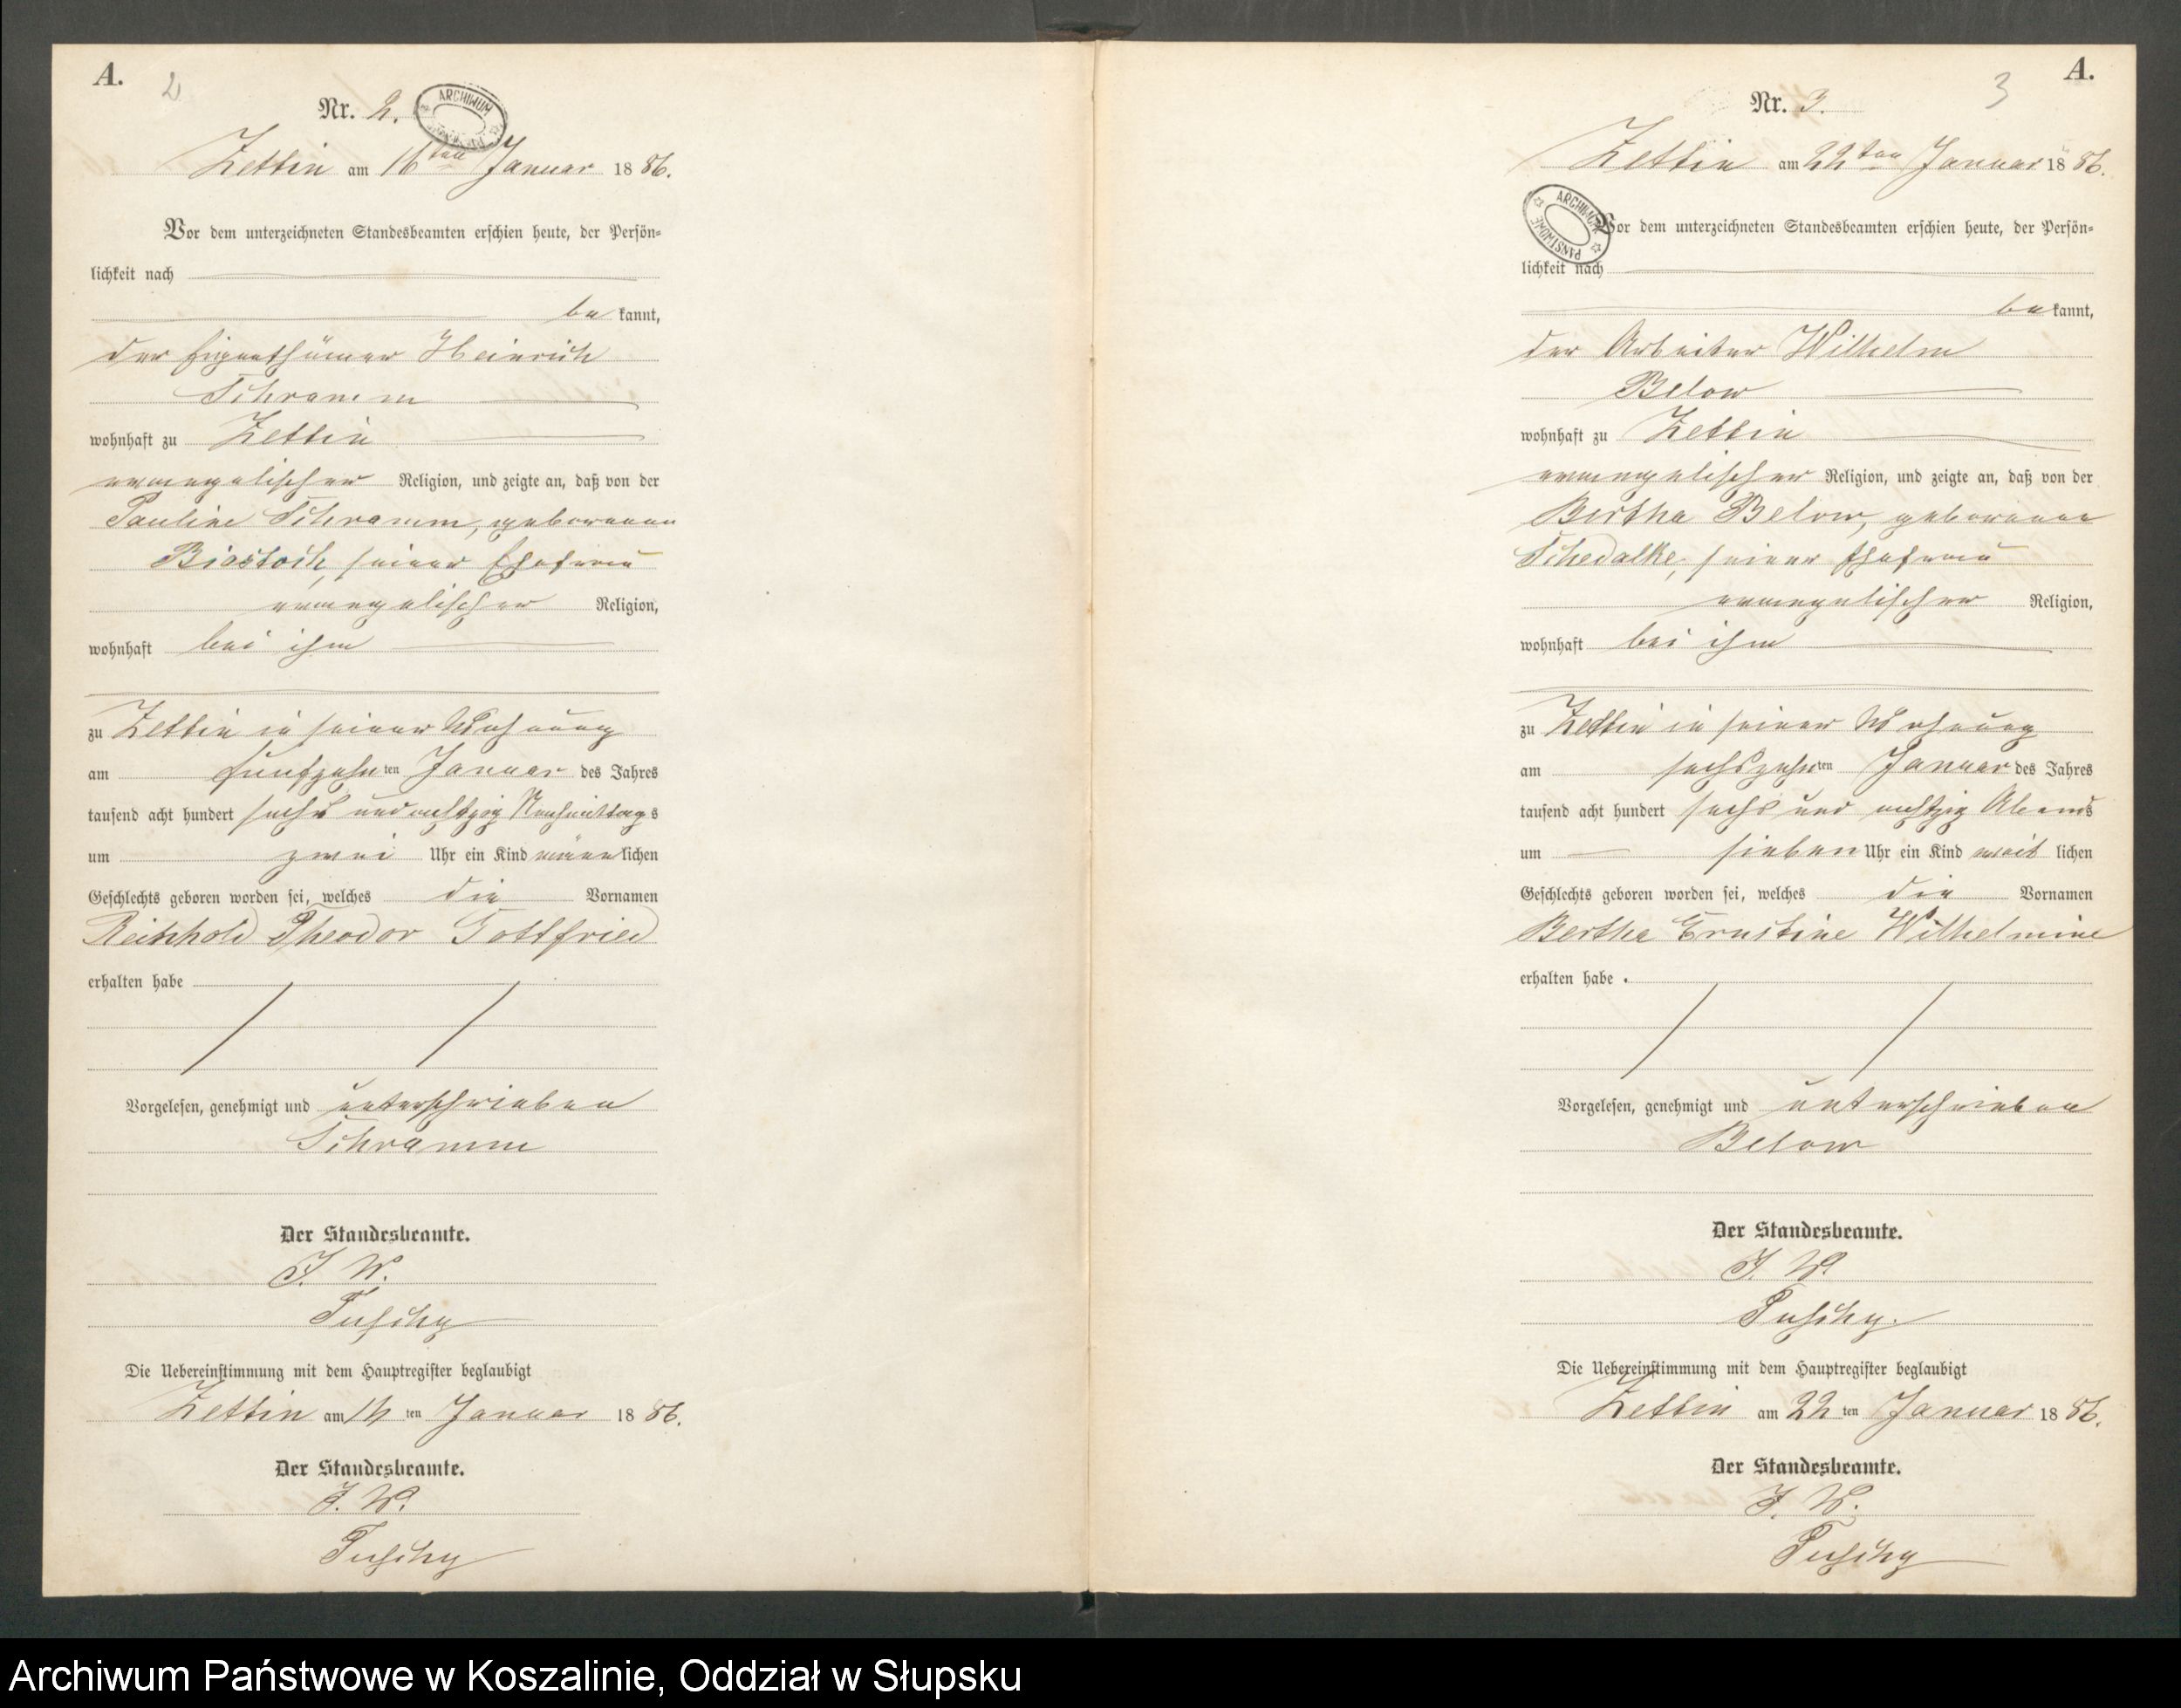 A.
2
Nr. 2.
ARCHIWUM
Zettin am 16ten Januar 1886.
Vor dem unterzeichneten Standesbeamten erschien heute, der Persön-
lichkeit nach
be kannt,
der Eigenthümer Heinrich
Schramm
wohnhaft zu Zettin
evangelischer Religion, und zeigte an, daß von der
Pauline Schramm, geborenen
Biastoch, seiner Ehefrau
evangelischer Religion,
wohnhaft bei ihm
zu Zettin in seiner Wohnung
am fünfzehnten Januar des Jahres
tausend acht hundert sechs und achtzig Nachmittags
um zwei Uhr ein Kind männlichen
Geschlechts geboren worden sei, welches die Vornamen
Reinhold Theodor Gottfried
erhalten habe
Vorgelesen, genehmigt und unterschrieben
Schramm
Der Standesbeamte.
J. V.
Die Uebereinstimmung mit dem Hauptregister beglaubigt
Zettin am ten Januar 1886.
Der Standesbeamte.
J. V.
A.
3
Nr. 3.
Zettin am 22ten Januar 1886.
ARCHIWUM PAŃSTWOWE
Vor dem unterzeichneten Standesbeamten erschien heute, der Persön-
lichkeit nach
be kannt,
der Arbeiter Wilhelm
Below
wohnhaft zu Zettin
evangelischer Religion, und zeigte an, daß von der
Bertha Below, geborenen
Schedalke, seiner Ehefrau
evangelischer Religion,
wohnhaft bei ihm
zu Zettin in seiner Wohnung
am sechszehnten Januar des Jahres
tausend acht hundert sechs und achtzig Abends
um sieben Uhr ein Kind weiblichen
Geschlechts geboren worden sei, welches die Vornamen
Bertha Ernstine Wilhelmine
erhalten habe.
Vorgelesen, genehmigt und unterschrieben
Below
Der Standesbeamte.
J. V.
Die Uebereinstimmung mit dem Hauptregister beglaubigt
Zettin am 22ten Januar 1886.
Der Standesbeamte.
J. V.
Archiwum Państwowe w Koszalinie, Oddział w Słupsku